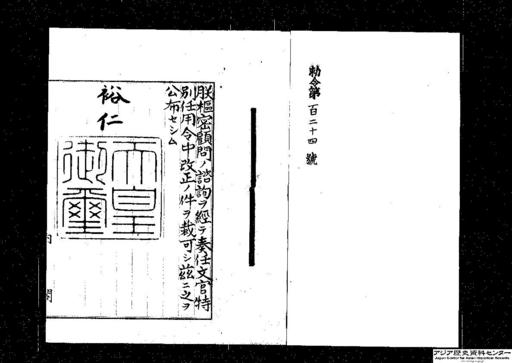 勅令第百二十四號
朕樞密顧問ノ諮詢ヲ經テ奏任文官特
別任用令中改正ノ件ヲ裁可シ茲ニ之ヲ
公布セシム
裕仁
天皇
御璽
内閣
アジア歴史資料センター
Japan Center for Asian Historical Records